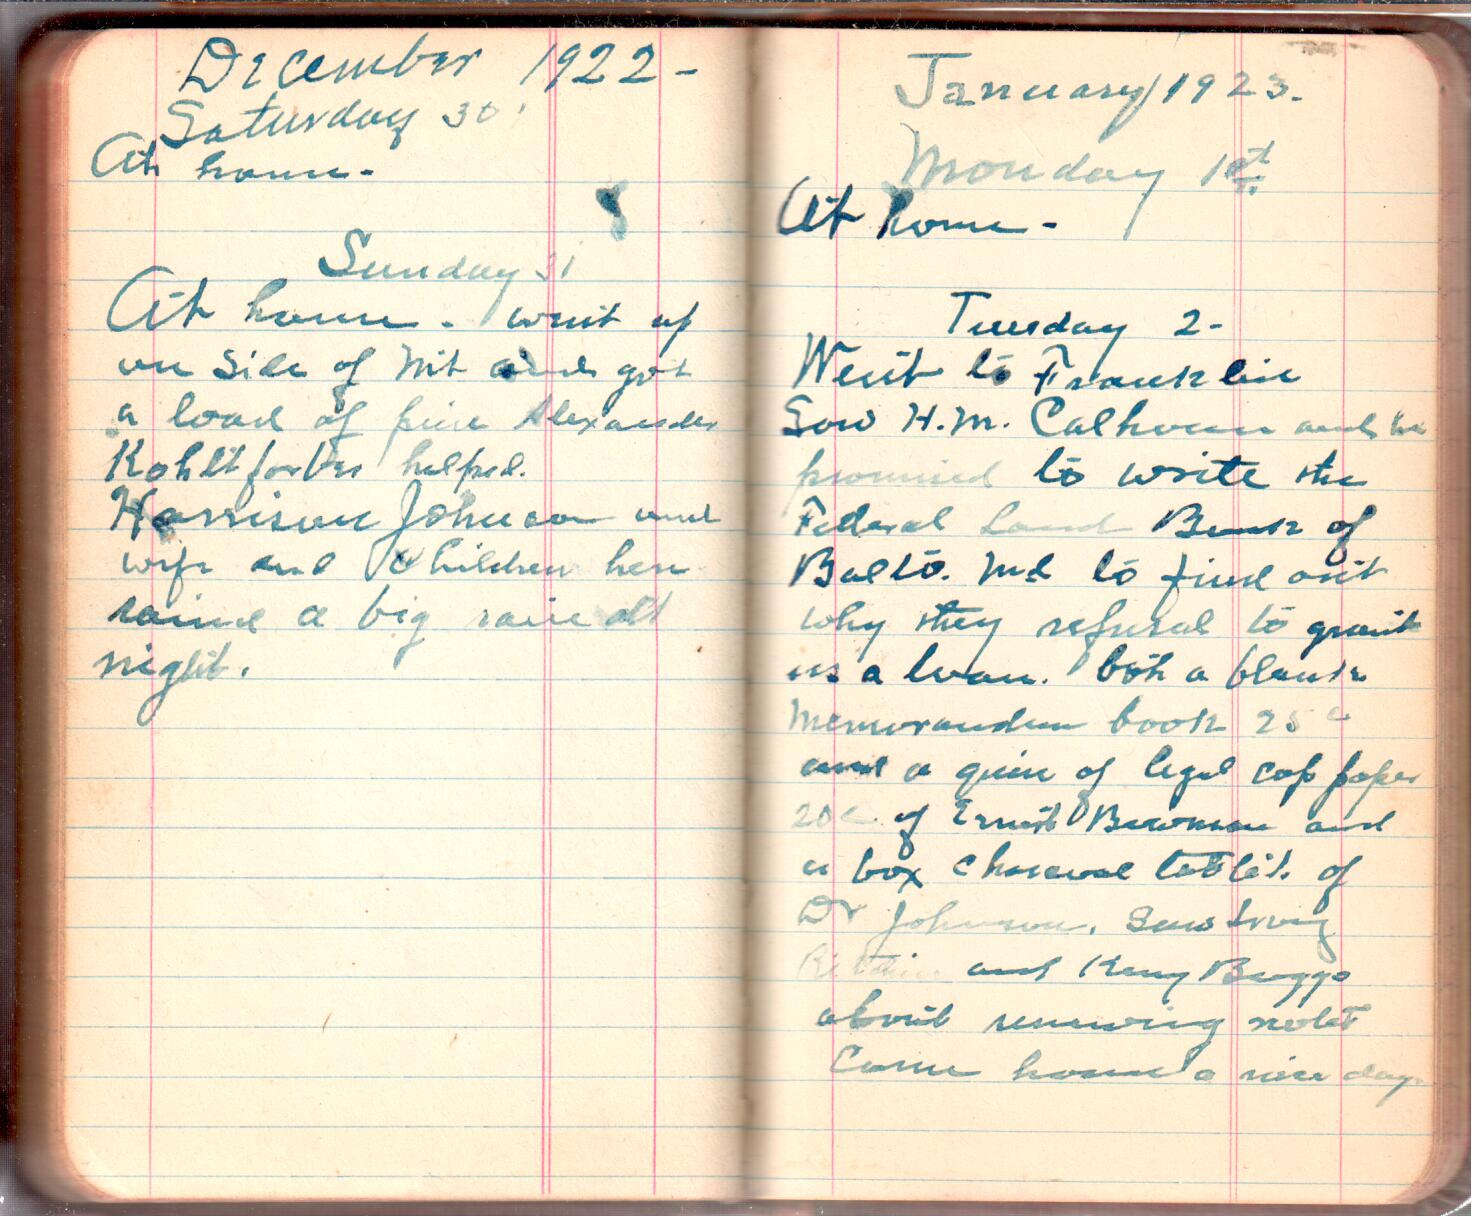 December 1922-
Saturday 30
At home-
Sunday 31
At home - went up
on Side of Mt and got
a load of pine Alexander
helped.
Harrison Johnson and
wife and Children here
rained a big rain at
night.
January 1923.
Monday 1st
At home-
Tuesday 2-
Went to Franklin
Saw H.M. Calhoun and he
promised to write the
Federal Land Bank of
Balto. Md to find out
why they refusal to grant
us a loan. Got a blank
Memorandum book 25c
and a quire of legal cap paper
20c of Ernest Bowman and
a box charcoal tablets of
Dr Johnson. Saw Irving
and Boggs
about renewing note
Came home a nice day